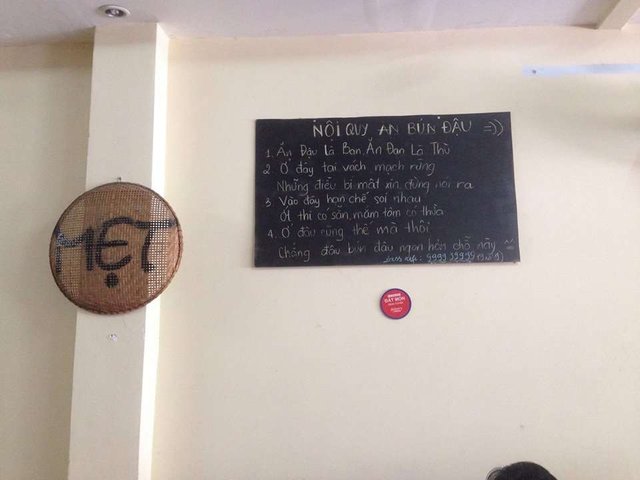 MẸT
NỘI QUY ĂN BÚN ĐẬU =))
1. Ăn Đậu Là Bạn, Ăn Đạn Là Thù
2. Ở đây tai vách mạch rừng
Những điều bí mật xin đừng nói ra
3. Vào đây hạn chế soi nhau
Ớt thì có sẵn, mắm tôm có thừa
4. Ở đâu cũng thế mà thôi
Chẳng đâu bún đậu ngon hơn chỗ này
ĐẶT MÓN